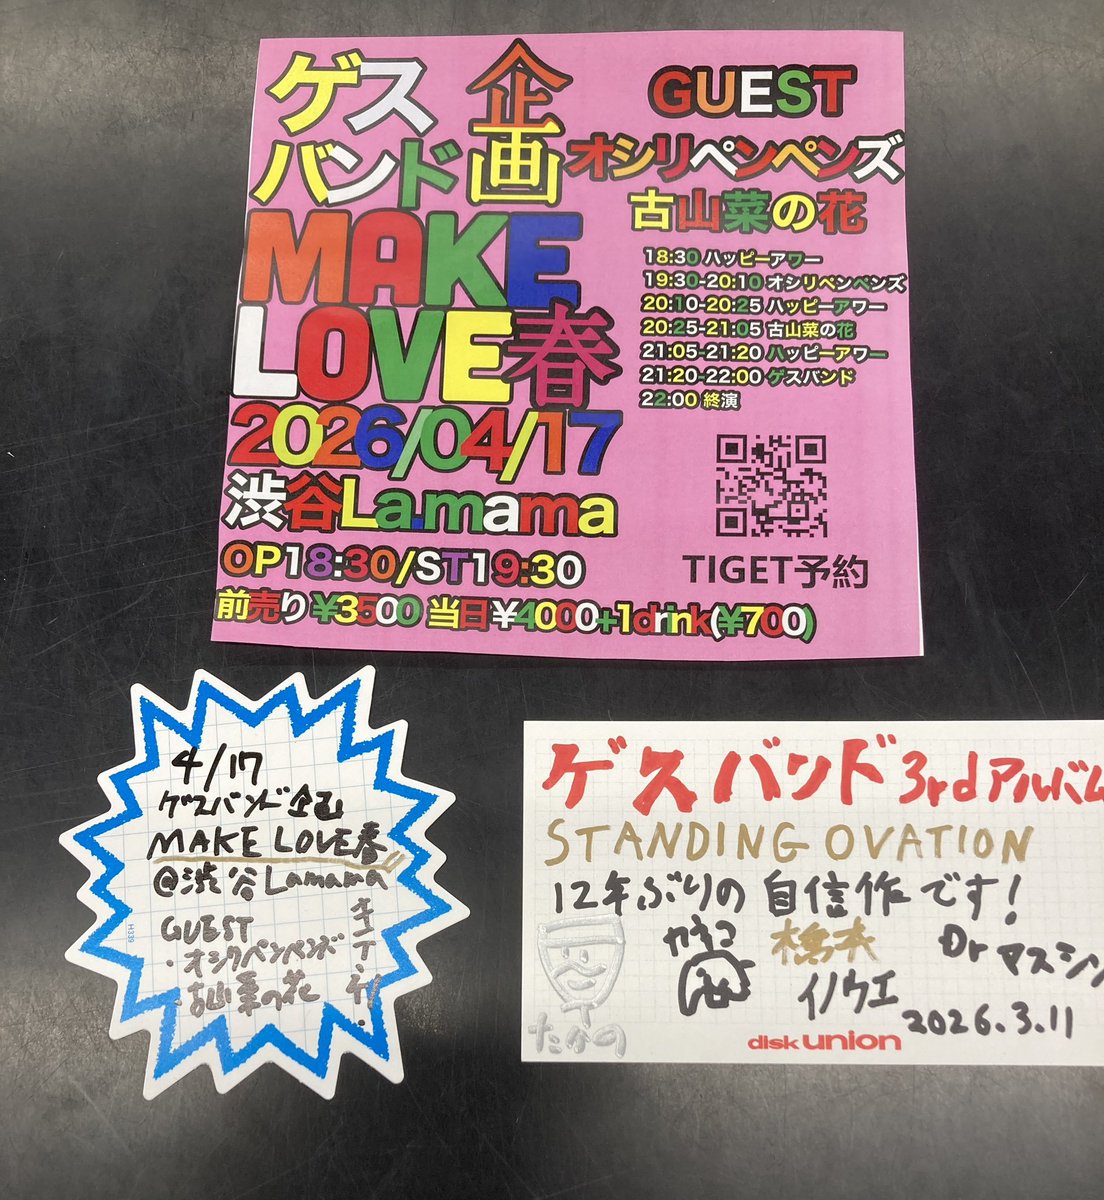 ゲス
バンド
企画
MAKE
LOVE春
2026/04/17
渋谷La.mama
OP18:30/ST19:30
前売り¥3500 当日¥4000+1drink(¥700)
GUEST
オシリペンペンズ
古山菜の花
18:30 ハッピーアワー
19:30-20:10 オシリペンペンズ
20:10-20:25 ハッピーアワー
20:25-21:05 古山菜の花
21:05-21:20 ハッピーアワー
21:20-22:00 ゲスバンド
22:00 終演
TIGET予約
4/17
ゲスバンド企画
MAKE LOVE春
@渋谷Lamama
GUEST
・オシリペンペンズ
・古山菜の花
キテネ!
H339
ゲスバンド 3rdアルバム
STANDING OVATION
12年ぶりの自信作です!
カネコ
橋本
Dr マスシン
イノウエ
たかの
2026.3.11
disk union